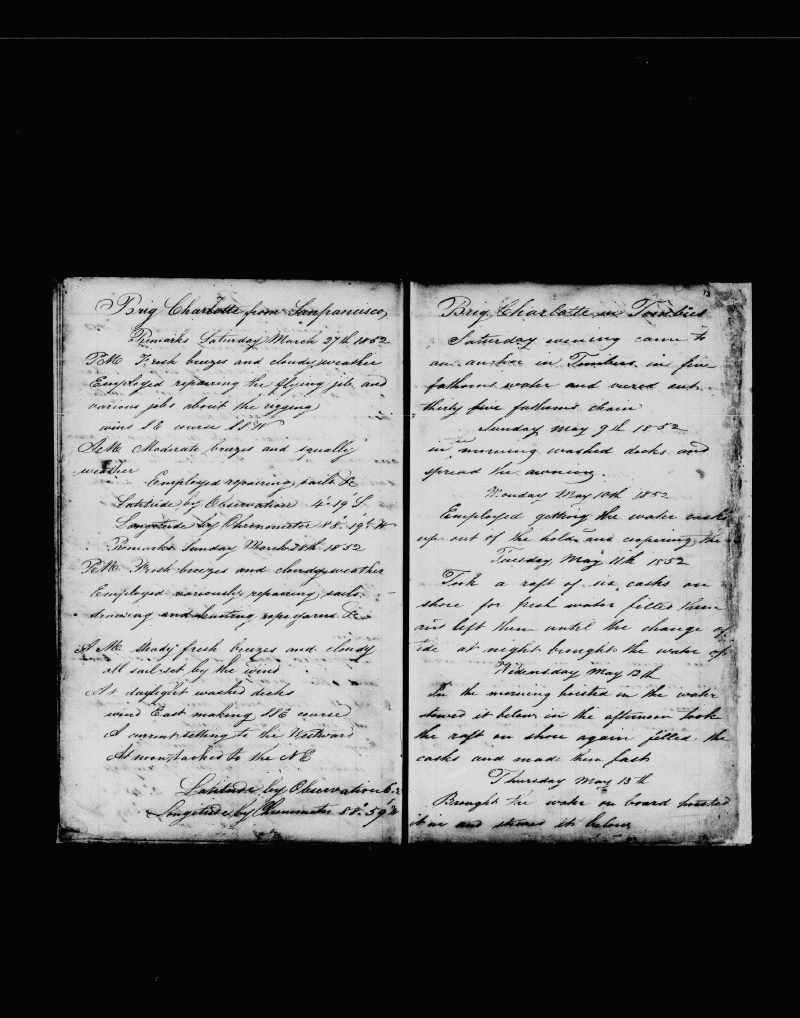 Brig Charlotte from Sanfrancisco
Remarks Saturday March 27th 1852
PM Fresh breezes and cloudy weather
Employed repairing the flying jib and
various jobs about the rigging
wind SE course SSW
AM Moderate breezes and squally
weather
Employed repairing sails &c
Latitude by Observation 4°. 19' S.
Longitude by Chronometer 88°. 19' W
Remarks Sunday March 28th 1852
PM Fresh breezes and cloudy weather
Employed variously repairing sails
drawing and knotting ropeyarns &c
A M Steady fresh breezes and cloudy
all sail set by the wind
At daylight washed decks
wind East making SSE course
A current setting to the Westward
At noon tacked to the NE
Latitude by Observation 6
Longitude by Chronometer 88°. 59' W
13
Brig Charlotte in Tumbes
Saturday evening came to
an anchor in Tumbes in five
fathoms water and veered out
thirty five fathoms chain
Sunday May 9th 1852
in morning washed decks and
spread the awning.
Monday May 10th 1852
Employed getting the water casks
up out of the hold and coopering the
Tuesday May 11th 1852
Took a raft of six casks on
shore for fresh water filled them
and left them until the change of
tide at night brought the water off
Widensday May 12th
In the morning hoisted in the water
stowed it below in the afternoon took
the raft on shore again filled the
casks and made them fast
Thursday May 13th
Brought the water on board hoisted
it in and stowed it below